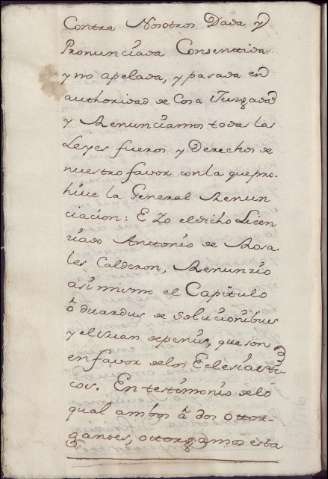 Contra Nosotros Dada y
Pronunciada Consentida
y no apelada, y pasada en
authoridad de Cosa Juzgada
y Renunciamos todas las
Leyes fueros y Derechos de
nuestro favor con la que pro
hive la General Renun
ciacion: E Yo el dicho Licen
ciado Anttonio de Rosa
les Calderon, Renunçio
asi mismo el Capitulo
o duardus de solucionibus
y el suan depenis, que son
en favor de los Eclesiasti
cos. En testimonio de lo
qual ambos â dos ottor-
gantes, ottorgamos esta